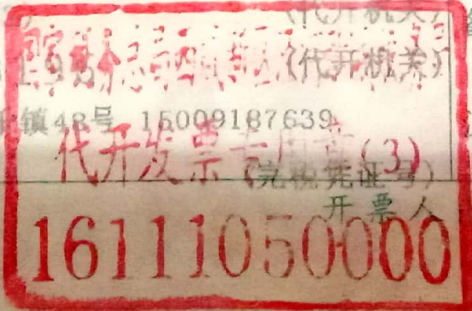 (代开机关)
(代开机关)
镇48号 15009187639
代开发票专用章(3)
(完税凭证号)
开票人
16111050000